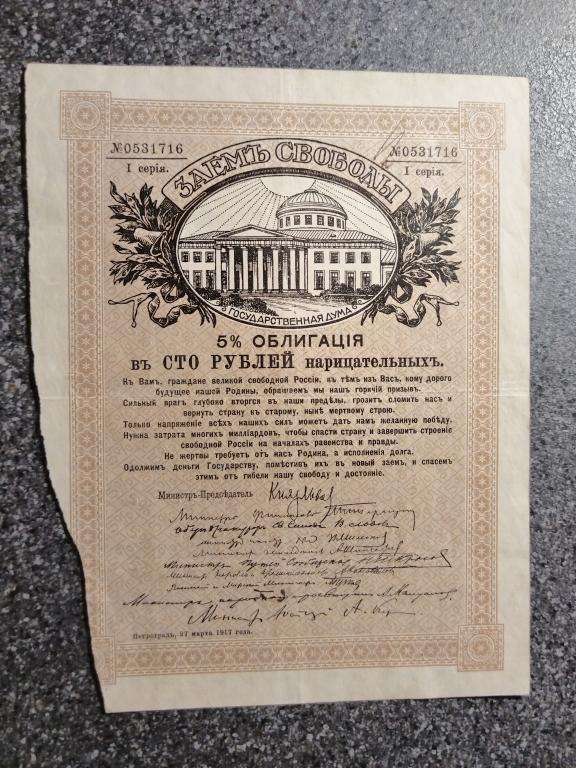 №0531716 №0531716
I серія. I серія.
ЗАЕМЪ СВОБОДЫ
ГОСУДАРСТВЕННАЯ ДУМА
5% ОБЛИГАЦІЯ
въ СТО РУБЛЕЙ нарицательныхъ.
Къ Вамъ, граждане великой свободной Россіи, къ тѣмъ изъ Васъ, кому дорого
будущее нашей Родины, обращаемъ мы нашъ горячій призывъ.
Сильный врагъ глубоко вторгся въ наши предѣлы, грозитъ сломить насъ и
вернуть страну къ старому, нынѣ мертвому строю.
Только напряженіе всѣхъ нашихъ силъ можетъ дать намъ желанную побѣду.
Нужна затрата многихъ милліардовъ, чтобы спасти страну и завершить строеніе
свободной Россіи на началахъ равенства и правды.
Не жертвы требуетъ отъ насъ Родина, а исполненія долга.
Одолжимъ деньги Государству, помѣстивъ ихъ въ новый заемъ, и спасемъ
этимъ отъ гибели нашу свободу и достояніе.
Министръ-Предсѣдатель Князь Львов
Министръ Финансовъ
Министръ Путей Сообщенія
Петроградъ, 27 марта 1917 года.